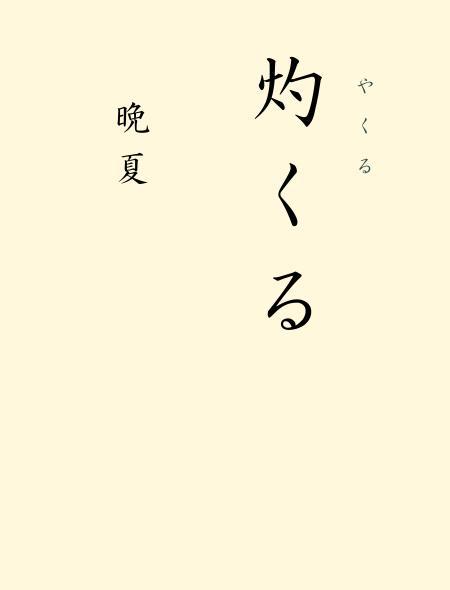 やくる
灼くる
晩夏